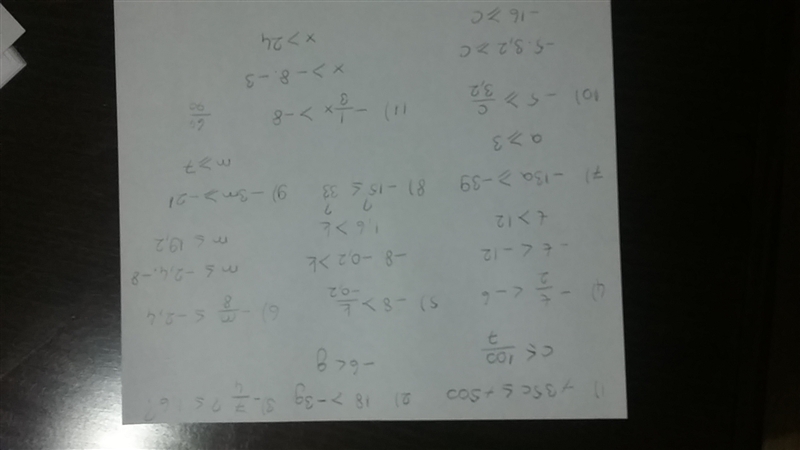 1) +35c ≤ +500 2) 18 > -3g 3) - 7/4 ? ≤ 6?
c ≤ 100/7 -6 < g
4) - t/2 < -6 5) -8 > k/-0,2 6) - m/8 ≤ -2,4
-t < -12 -8 · -0,2 > k m ≤ -2,4 · -8
t > 12 1,6 > k m ≤ 19,2
7) -13a ≥ -39 8) -15 ≤ 33 9) -3m ≥ -21
? ?
a ≥ 3 m ≥ 7
10) -5 ≥ c/3,2 11) - 1/3 x > -8
-5 · 3,2 ≥ c x > -8 · -3
-16 ≥ c x > 24